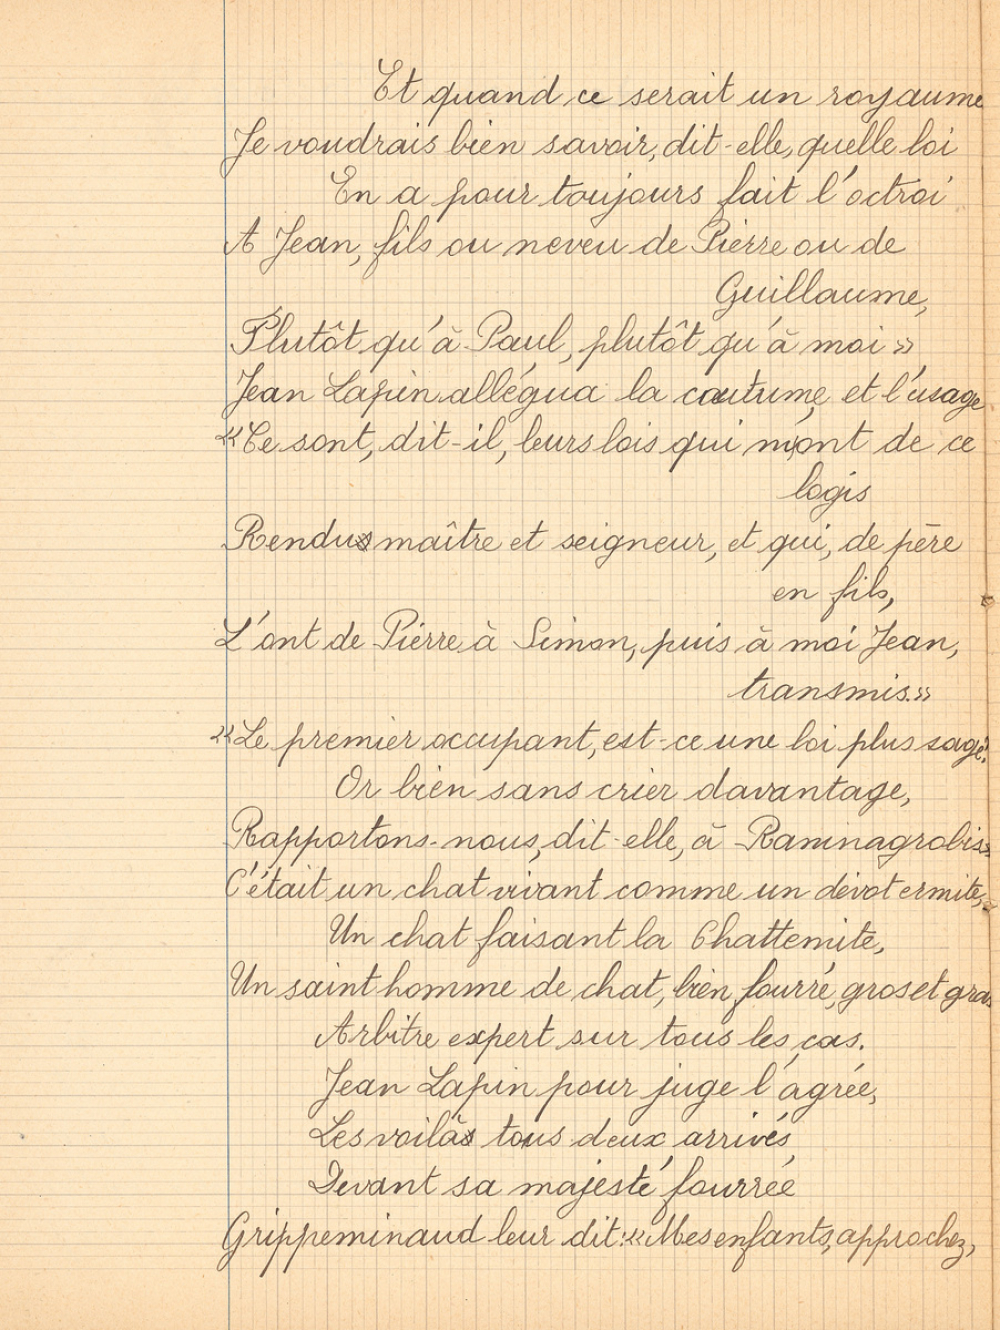 Et quand ce serait un royaume
Je voudrais bien savoir, dit-elle, quelle loi
En a pour toujours fait l'octroi
A Jean, fils ou neveu de Pierre ou de
Guillaume,
Plutôt qu'à Paul, plutôt qu'à moi »
Jean Lapin allégua la coutume, et l'usage
« Ce sont, dit-il, leurs lois qui m'ont de ce
logis
Rendu maître et seigneur, et qui, de père
en fils,
L'ont de Pierre à Simon, puis à moi Jean,
transmis. »
« Le premier occupant, est-ce une loi plus sage?
Or bien sans crier davantage,
Rapportons-nous, dit-elle, à Raminagrobis »
C'était un chat vivant comme un dévot ermite,
Un chat faisant la Chattemite,
Un saint homme de chat, bien fourré, gros et gras
Arbitre expert sur tous les cas.
Jean Lapin pour juge l'agrée,
Les voilà tous deux arrivés
Devant sa majesté fourrée
Grippeminaud leur dit : « Mes enfants, approchez,